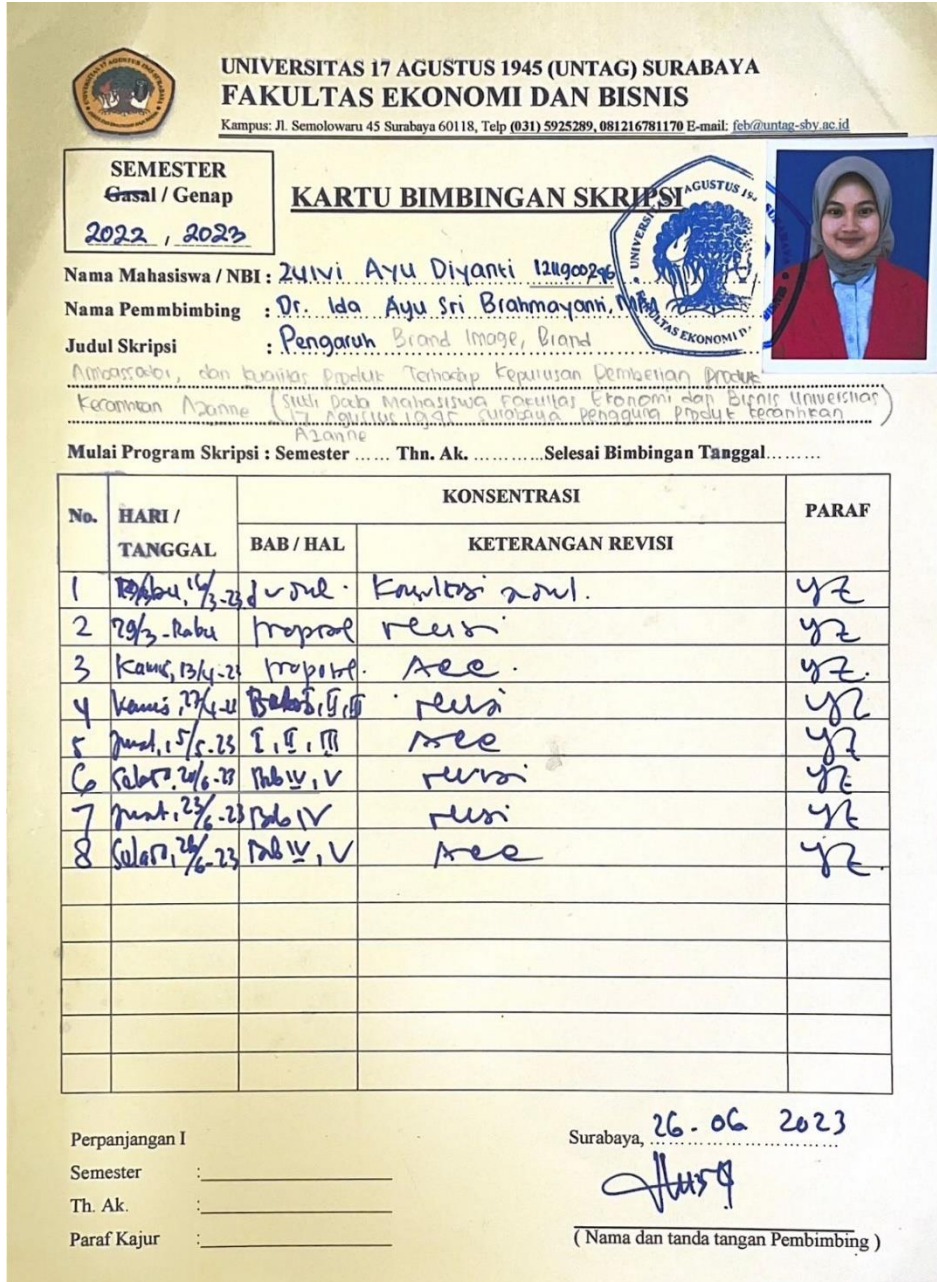 UNIVERSITAS 17 AGUSTUS 1945 (UNTAG) SURABAYA
FAKULTAS EKONOMI DAN BISNIS
Kampus: Jl. Semolowaru 45 Surabaya 60118, Telp (031) 5925289, 081216781170 E-mail: feb@untag-sby.ac.id
SEMESTER
Gasal / Genap
2022 , 2023
KARTU BIMBINGAN SKRIPSI
Nama Mahasiswa / NBI : Zulvi Ayu Diyanti 1211900296
Nama Pemmbimbing : Dr. Ida Ayu Sri Brahmayanti, MM
Judul Skripsi : Pengaruh Brand Image, Brand
Ambassador, dan kualitas Produk Terhadap Keputusan Pembelian Produk
Kecantikan Azanne (Studi Pada Mahasiswa Fakultas Ekonomi dan Bisnis Universitas
17 Agustus 1945 Surabaya pengguna Produk kecantikan)
Azanne
Mulai Program Skripsi : Semester ...... Thn. Ak. ...........Selesai Bimbingan Tanggal.........
No. HARI / TANGGAL KONSENTRASI PARAF
BAB / HAL KETERANGAN REVISI
1 Judul. Konsultasi Judul. YZ
2 29/3-Rabu proposal revisi YZ
3 Kamis, 13/4-23 proposal. Acc. YZ.
4 Kamis, 27/4- I, II, III revisi YZ
5 Jumat, 5/5-23 I, II, III Acc YZ
6 Selasa, 20/6-23 Bab IV, V revisi YZ
7 Jumat, 23/6-23 Bab IV revisi YZ
8 Selasa, 26/6-23 Bab IV, V Acc YZ.
Perpanjangan I
Semester :
Th. Ak. :
Paraf Kajur :
Surabaya, 26-06 2023
( Nama dan tanda tangan Pembimbing )